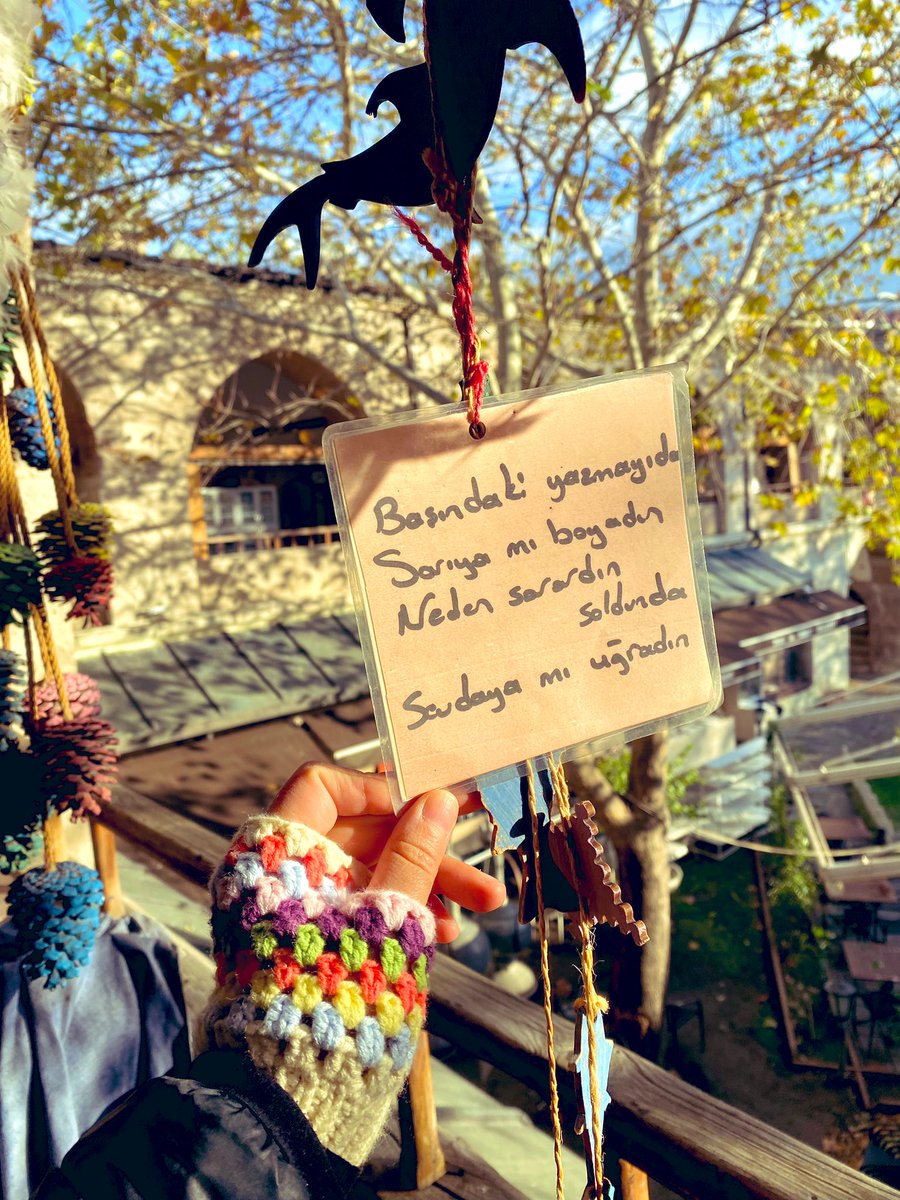 Başındaki yazmayıda
Sarıya mı boyadın
Neden sarardın
soldunda
Sevdaya mı uğradın